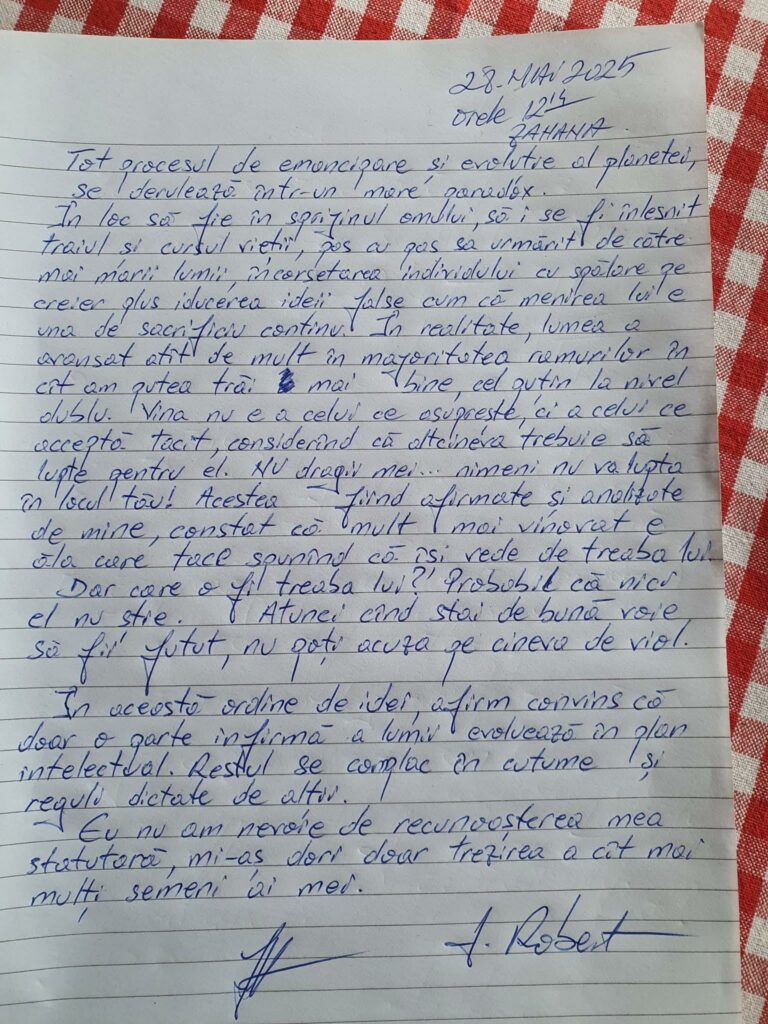 28. MAI 2025
orele 12¹⁴
ZAHANA
Tot procesul de emancipare și evoluție al planetei,
se derulează într-un mare paradox.
În loc să fie în sprijinul omului, să i se fi înlesnit
traiul si cursul vieții, pas cu pas sa urmărit de către
mai marii lumii, încorsetarea individului cu spălare pe
creier plus iducerea ideii false cum că menirea lui e
una de sacrificiu continu. În realitate, lumea a
avansat atît de mult în majoritatea ramurilor în
cît am putea trăi mai bine, cel puțin la nivel
dublu. Vina nu e a celui ce asuprește, ci a celui ce
acceptă tacit, considerînd că altcineva trebuie să
lupte pentru el. NU dragii mei... nimeni nu va lupta
în locul tău! Acestea fiind afirmate și analizate
de mine, constat că mult mai vinovat e
ăla care tace spunînd că își vede de treaba lui.
Dar care o fi treaba lui? Probabil că nici
el nu știe. Atunci cînd stai de bună voie,
să fii futut, nu poți acuza pe cineva de viol.
În această ordine de idei, afirm convins că
doar o parte infirmă a lumii evoluează în plan
intelectual. Restul se complac în cutume și
reguli dictate de alții.
Eu nu am nevoie de recunoașterea mea
statutară, mi-aș dori doar trezirea a cît mai
mulți semeni ai mei.
J. Robert